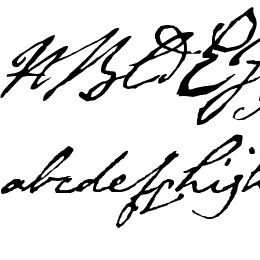 ABCDEF
abcdefghijk